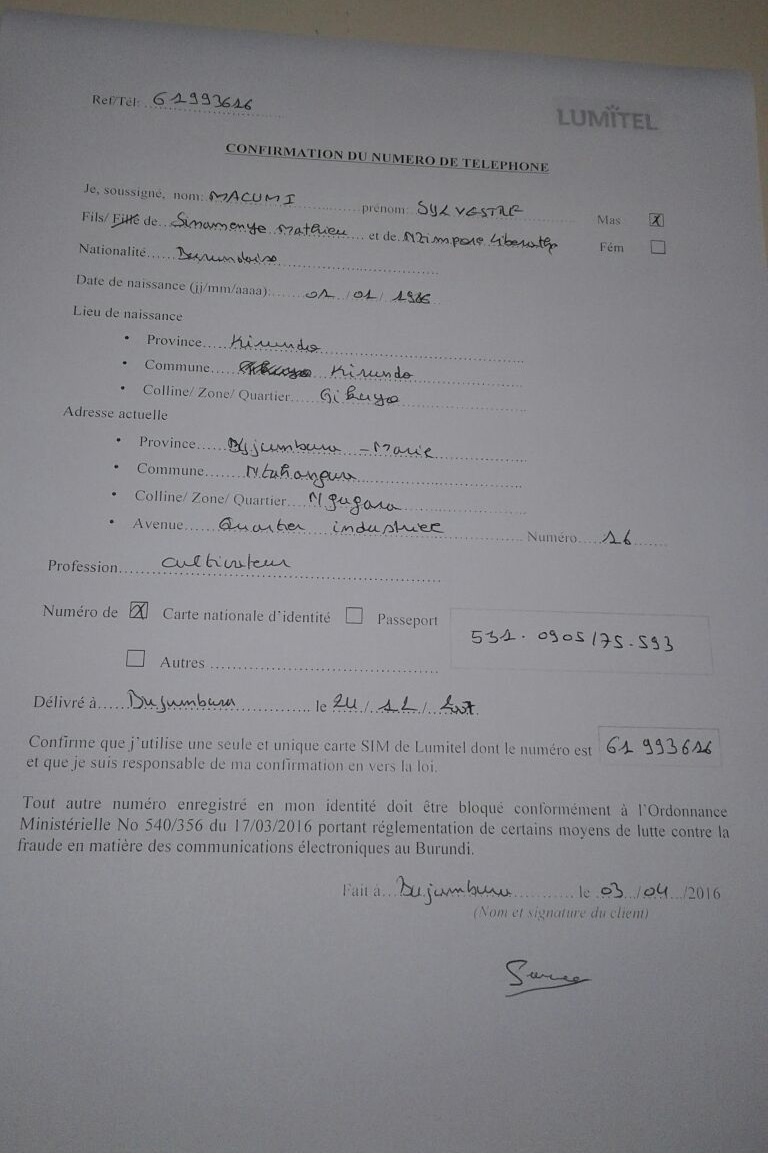 Ref/Tél: 61993616
LUMITEL
CONFIRMATION DU NUMERO DE TELEPHONE
Je, soussigné, nom: MACUMI prénom: SYLVESTRE Mas X
Fils/ Fille de Sinamenye Mathieu et de Nzimpora Liberate Fém
Nationalité Burundaise
Date de naissance (jj/mm/aaaa) 01 / 01 / 1986
Lieu de naissance
• Province Kirundo
• Commune Kirundo
• Colline/ Zone/ Quartier Gikuyo
Adresse actuelle
• Province Bujumbura - Marie
• Commune Ntahangwa
• Colline/ Zone/ Quartier Ngagara
• Avenue Quartier industriel Numéro 16
Profession cultivateur
Numéro de X Carte nationale d'identité Passeport 531.0905/75.593
Autres
Délivré à Bujumbura le 24 / 12 /
Confirme que j'utilise une seule et unique carte SIM de Lumitel dont le numéro est 61 993616
et que je suis responsable de ma confirmation en vers la loi.
Tout autre numéro enregistré en mon identité doit être bloqué conformément à l'Ordonnance
Ministérielle No 540/356 du 17/03/2016 portant réglementation de certains moyens de lutte contre la
fraude en matière des communications électroniques au Burundi.
Fait à Bujumbura le 03 / 04 /2016
(Nom et signature du client)